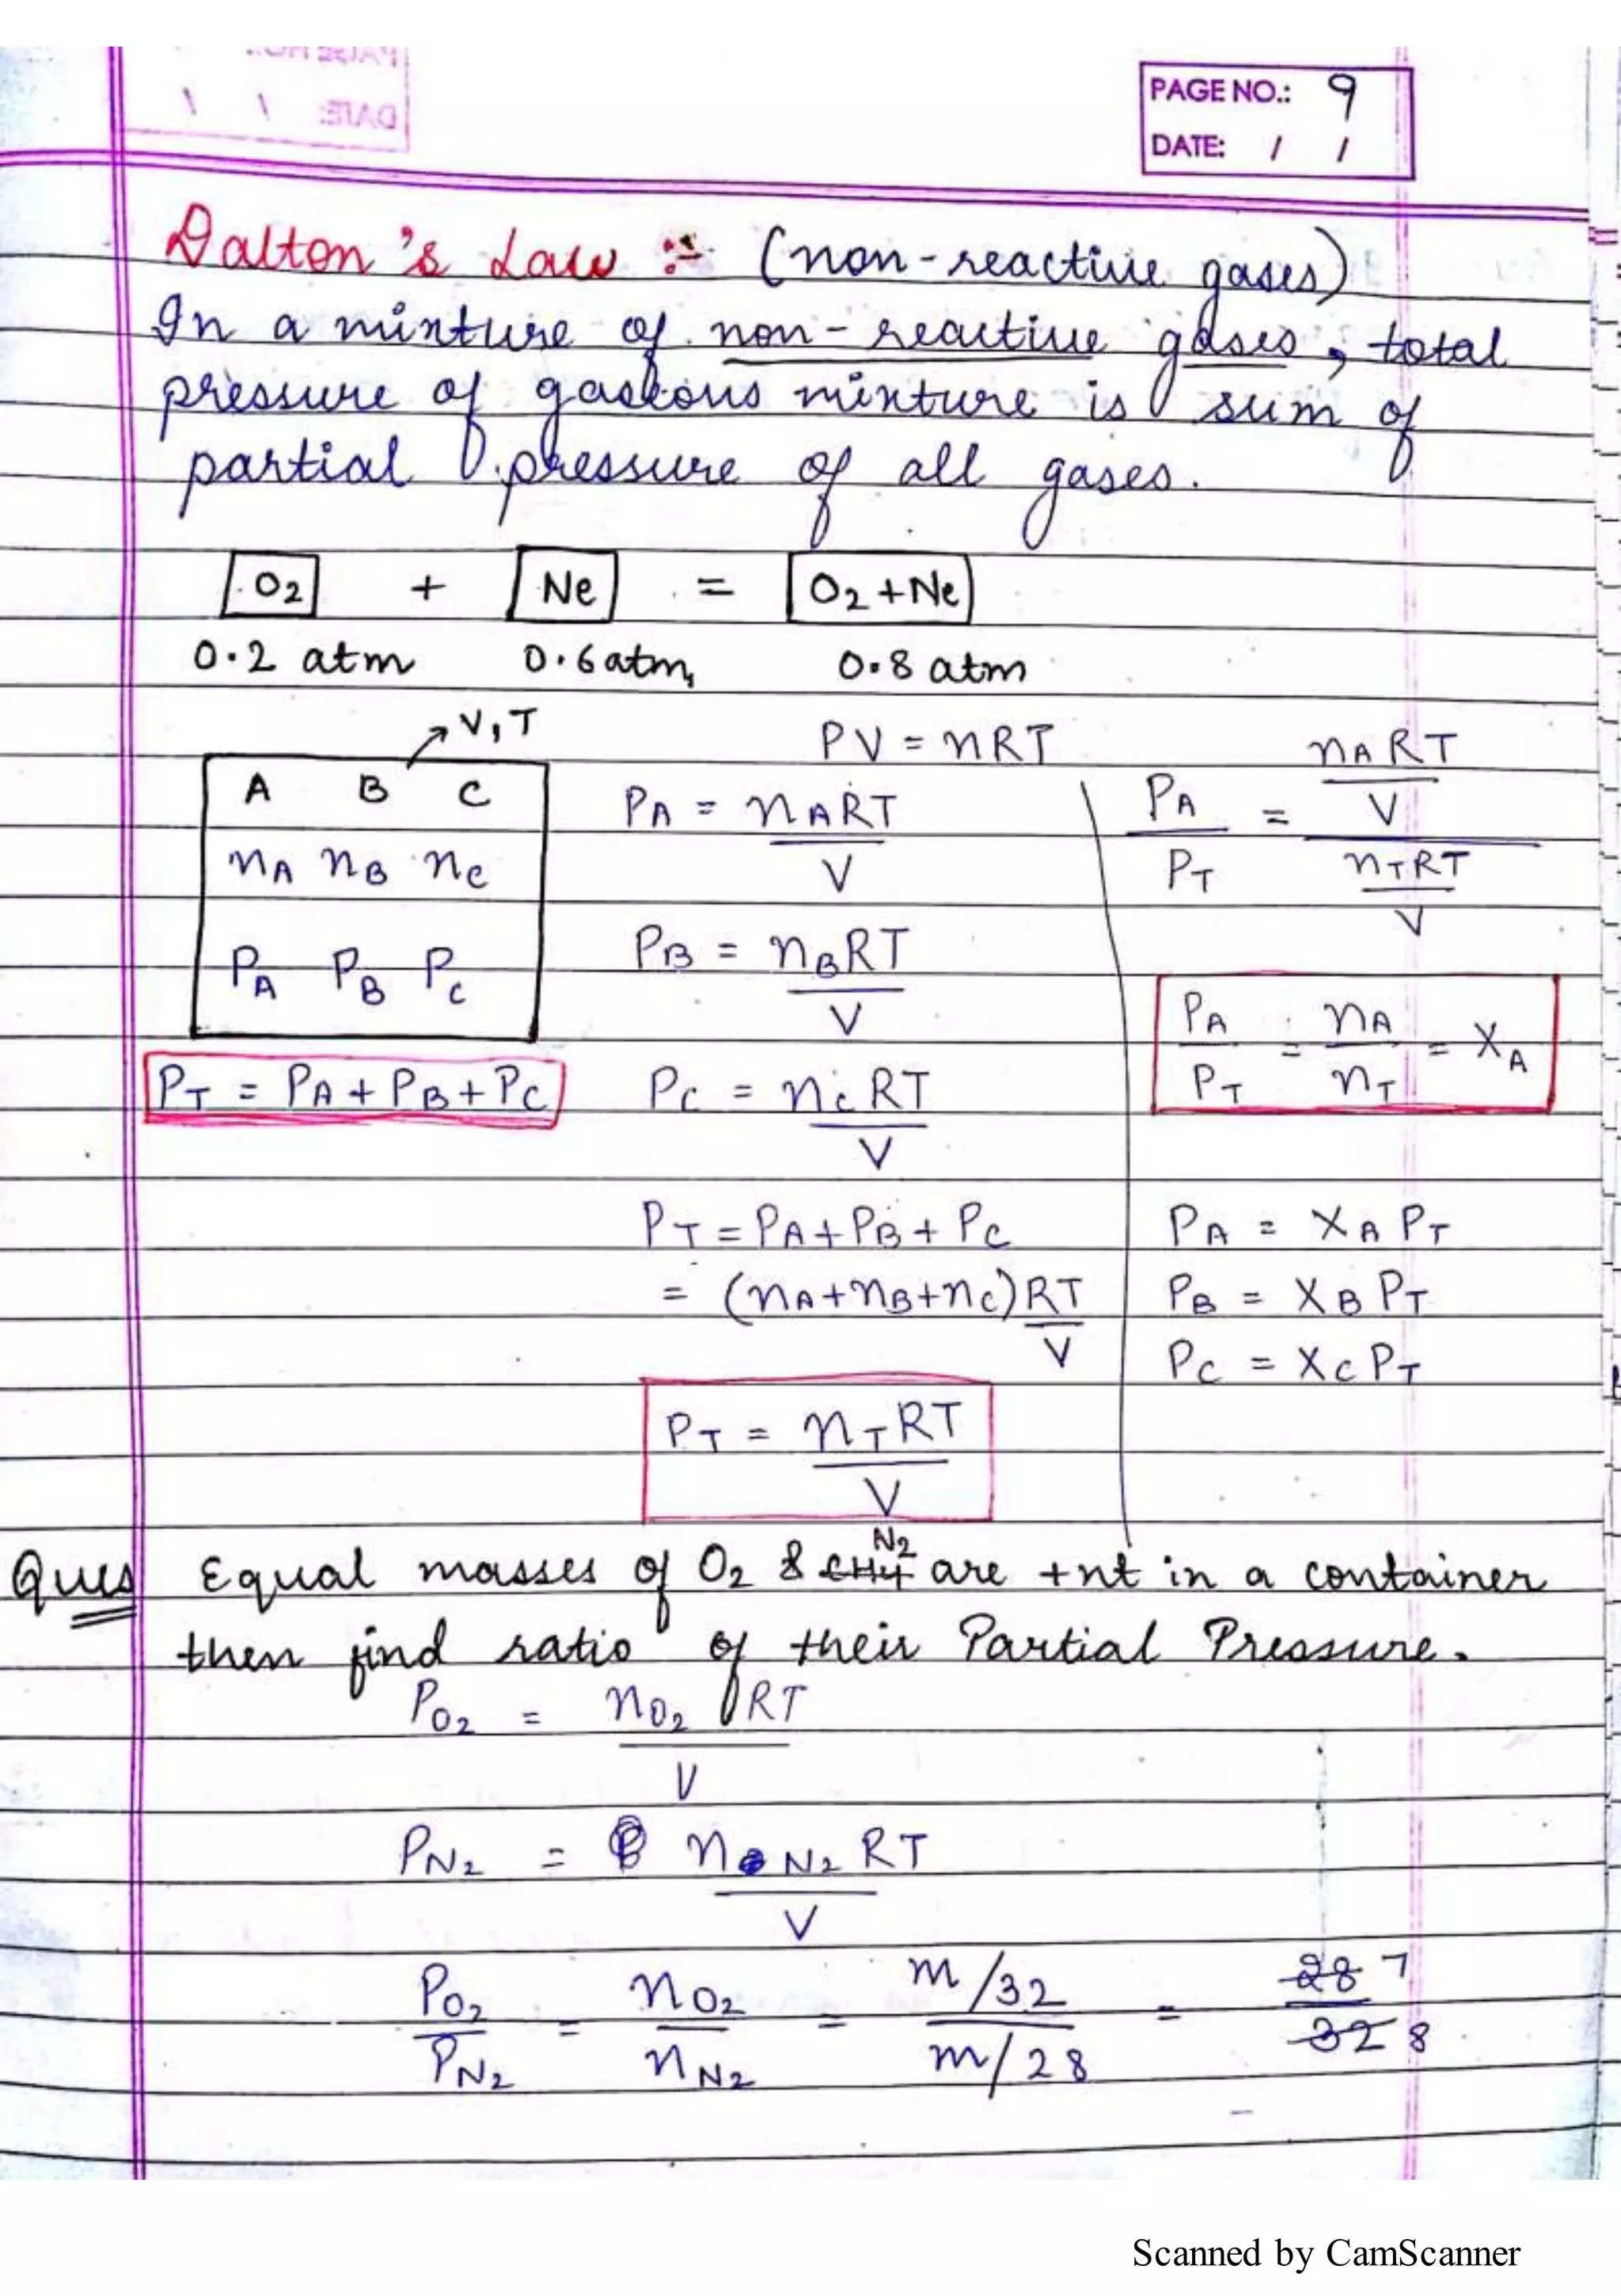 PAGE NO.: 9
DATE: / /
Dalton's Law :- (non-reactive gases)
In a mixture of non-reactive gases, total
pressure of gaseous mixture is sum of
partial pressure of all gases.
O₂ + Ne = O₂+Ne
0.2 atm 0.6 atm 0.8 atm
V, T
A B C
nA nB nC
PA PB PC
PT = PA + PB + PC
PV = nRT
PA = nART
V
PB = nBRT
V
PC = nCRT
V
PT = PA + PB + PC
= (nA+nB+nC) RT
V
PT = nTRT
V
nART
PA = V
PT nTRT
V
PA = nA = XA
PT nT
PA = XA PT
PB = XB PT
PC = XC PT
N₂
Ques Equal masses of O₂ & CH₄ are +nt in a container
then find ratio of their Partial Pressure.
PO₂ = nO₂ RT
V
PN₂ = nN₂ RT
V
PO₂ = nO₂ = m/32 = 28 7
PN₂ nN₂ m/28 32 8
Scanned by CamScanner